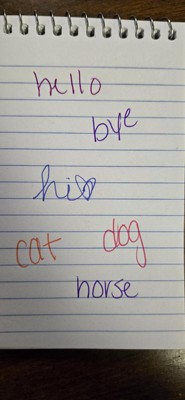 hello
bye
hi♡
cat dog
horse